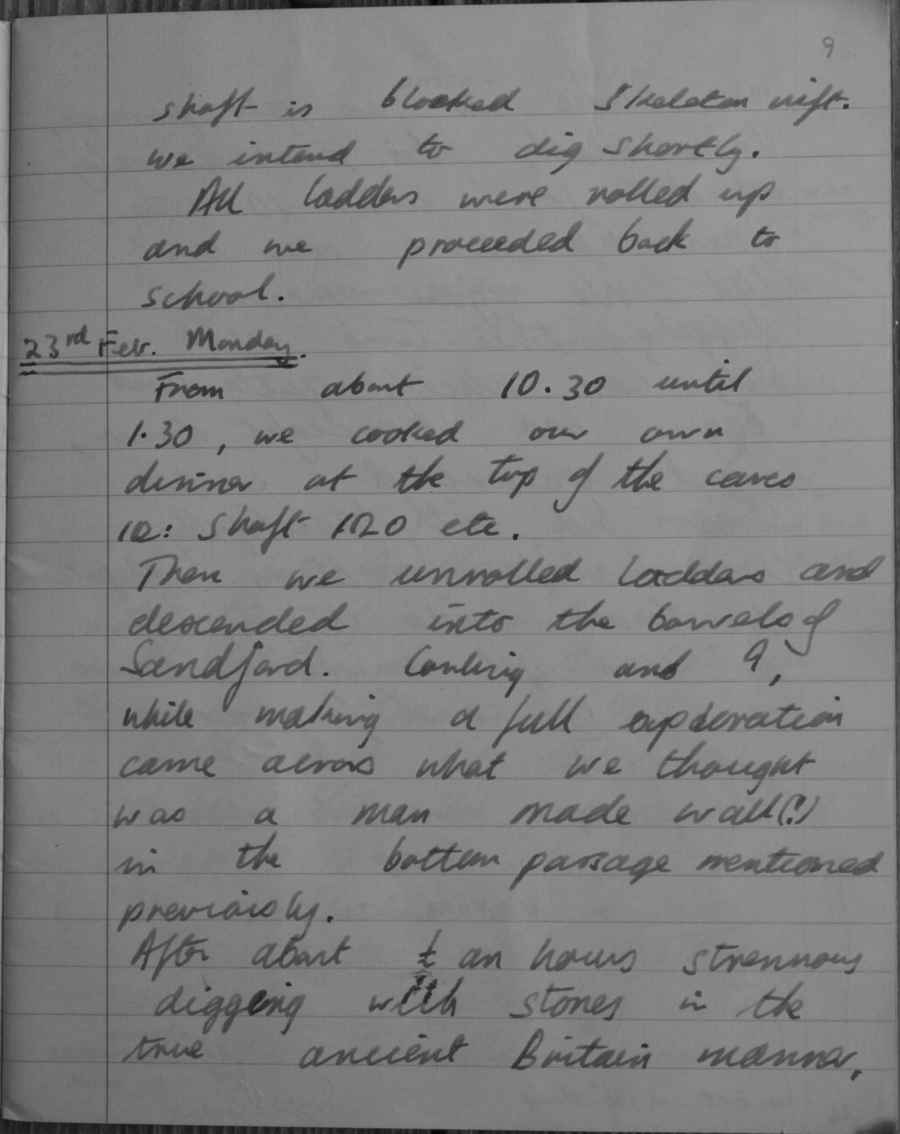 9
shaft is blocked Skeleton rift.
we intend to dig shortly.
All ladders were rolled up
and we proceeded back to
school.
23rd Feb. Monday.
From about 10.30 until
1.30, we cooked our own
dinner at the top of the caves
ie: shaft 120 etc.
Then we unrolled ladders and
descended into the bowels of
Sandford. and I,
while making a full exploration
came across what we thought
was a man made wall(?)
in the bottom passage mentioned
previously.
After about ½ an hours strenuous
digging with stones in the
true ancient Britain manner,